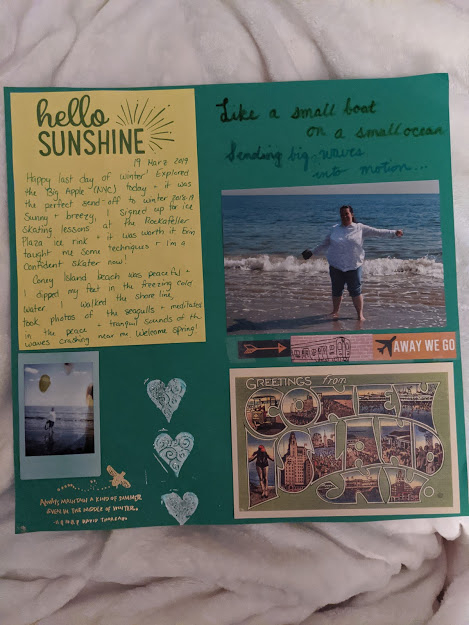 hello
SUNSHINE
19 Marz 2019
Happy last day of winter! Explored
the "Big Apple" (NYC) today + it was
the perfect send-off to winter 2018-19
Sunny + breezy, I signed up for ice
skating lessons at the Rockafeller
Plaza ice rink + it was worth it. Erin
taught me some techniques + I'm a
confident skater now!
Coney Island beach was peaceful +
I dipped my feet in the freezing cold
water. I walked the shore line,
took photos of the seagulls + meditated
in the peace + tranquil sounds of the
waves crashing near me. Welcome Spring!
Like a small boat
on a small ocean
Sending big waves
into motion...
AWAY WE GO
GREETINGS from
CONEY
ISLAND
N.Y.
ALWAYS MAINTAIN A KIND OF SUMMER
EVEN IN THE MIDDLE OF WINTER.
-HENRY DAVID THOREAU